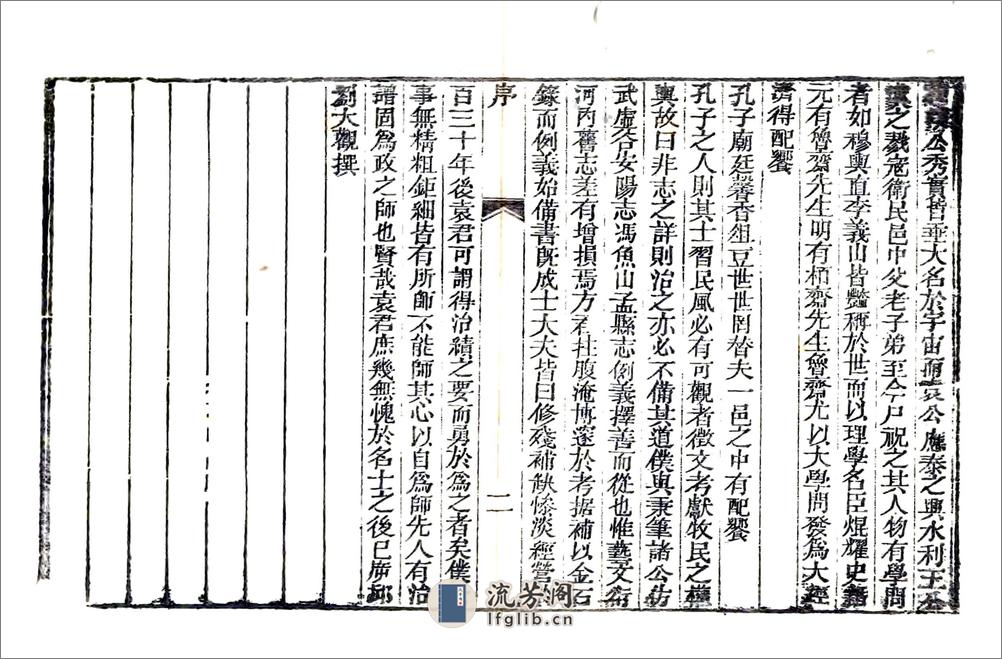 公秀實皆垂大名於宇宙而袁公應泰之興水利王公
漢之戮寇衛民邑中父老子弟至今尸祝之其人物有學問
者如穆與直李義山皆豔稱於世而以理學名臣焜耀史籍
元有魯齋先生明有栢齋先生魯齋尤以大學問發爲大經
濟得配饗
孔子廟廷馨香俎豆世世罔替夫一邑之中有配饗
孔子之人則其士習民風必有可觀者徵文考獻牧民之權
輿故曰非志之詳則治之亦必不備其道僕與秉筆諸公仿
武虛谷安陽志馮魚山孟縣志例義擇善而從也惟藝文衍
河內舊志差有增損焉方君柱腹淹博邃於考据補以金石
錄而例義始備書既成士大夫皆曰修殘補缺慘淡經營
序
二
百三十年後袁君可謂得治績之要而勇於爲之者矣僕
事無精粗鉅細皆有所師不能師其心以自爲師先人有治
譜固爲政之師也賢哉袁君庶幾無愧於名士之後已
劉大觀撰
流芳阁
lfglib.cn